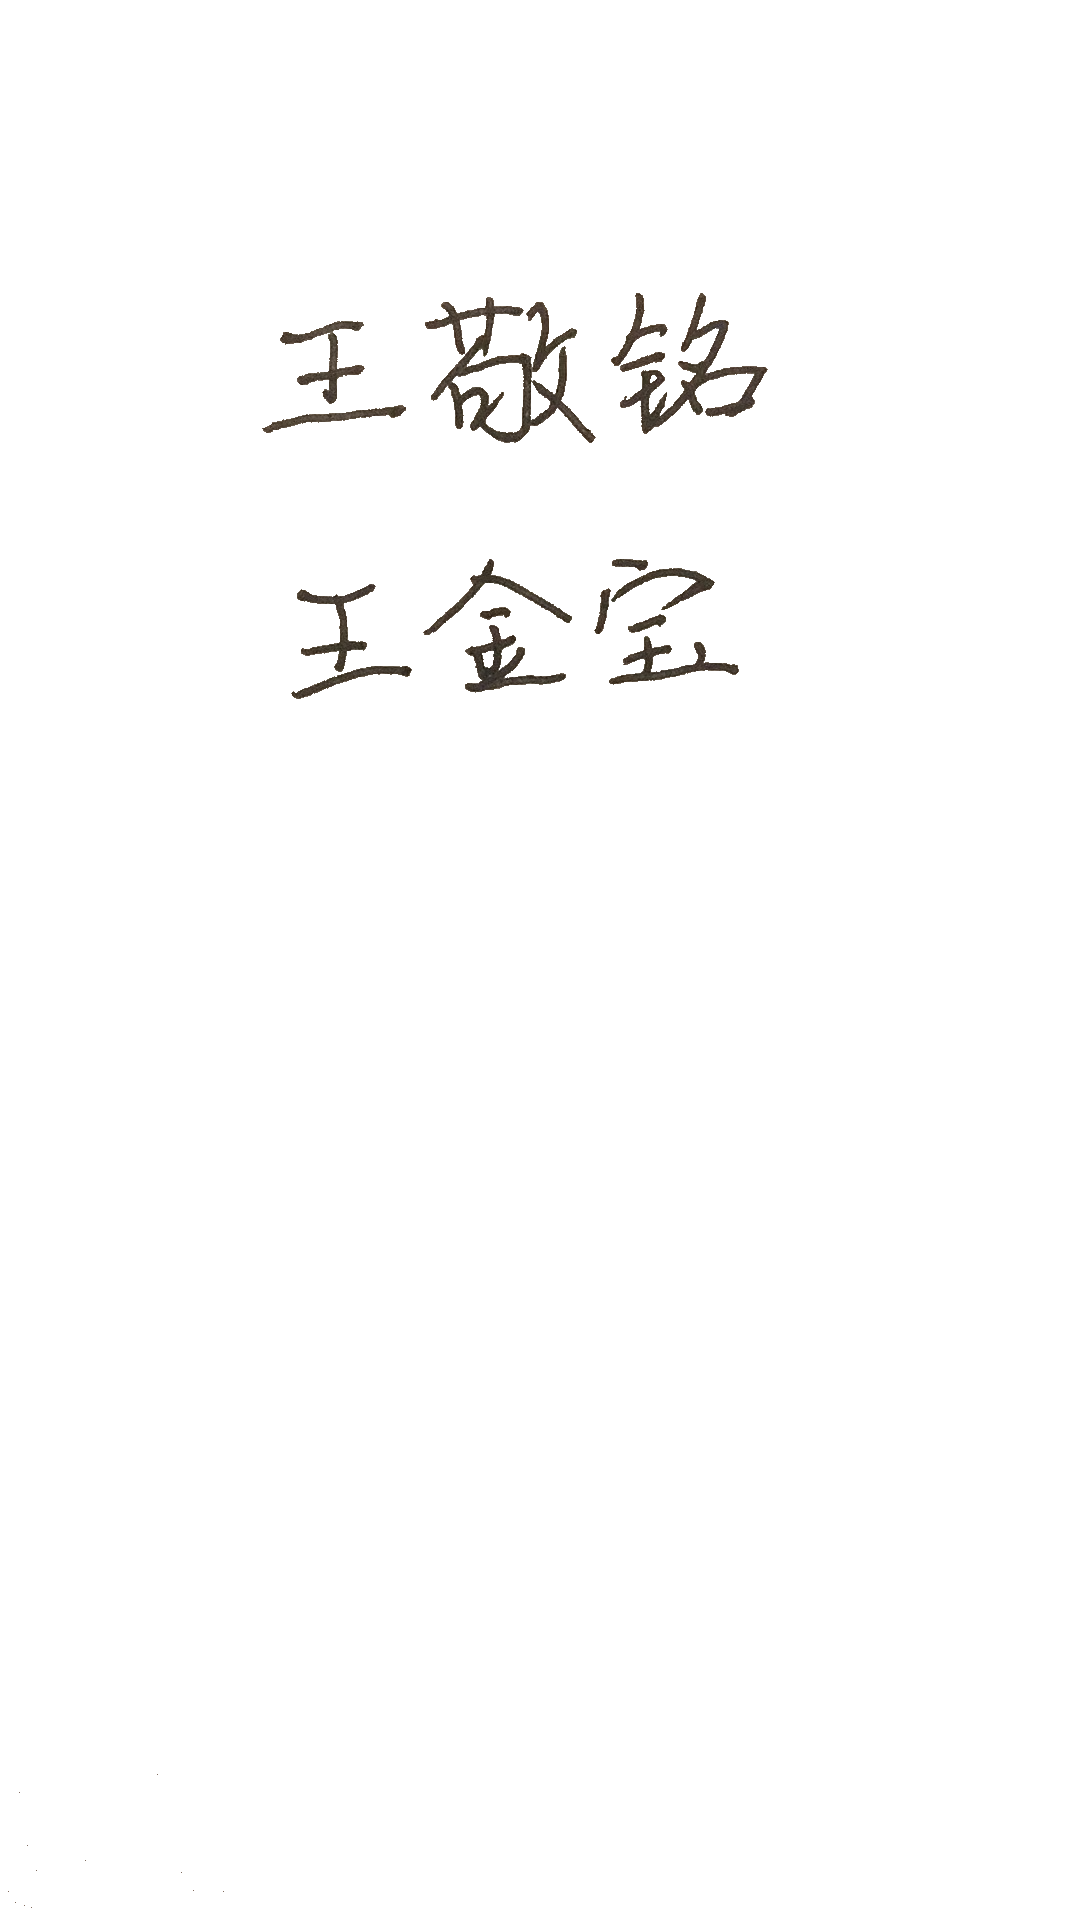 王敬铭
王金宝